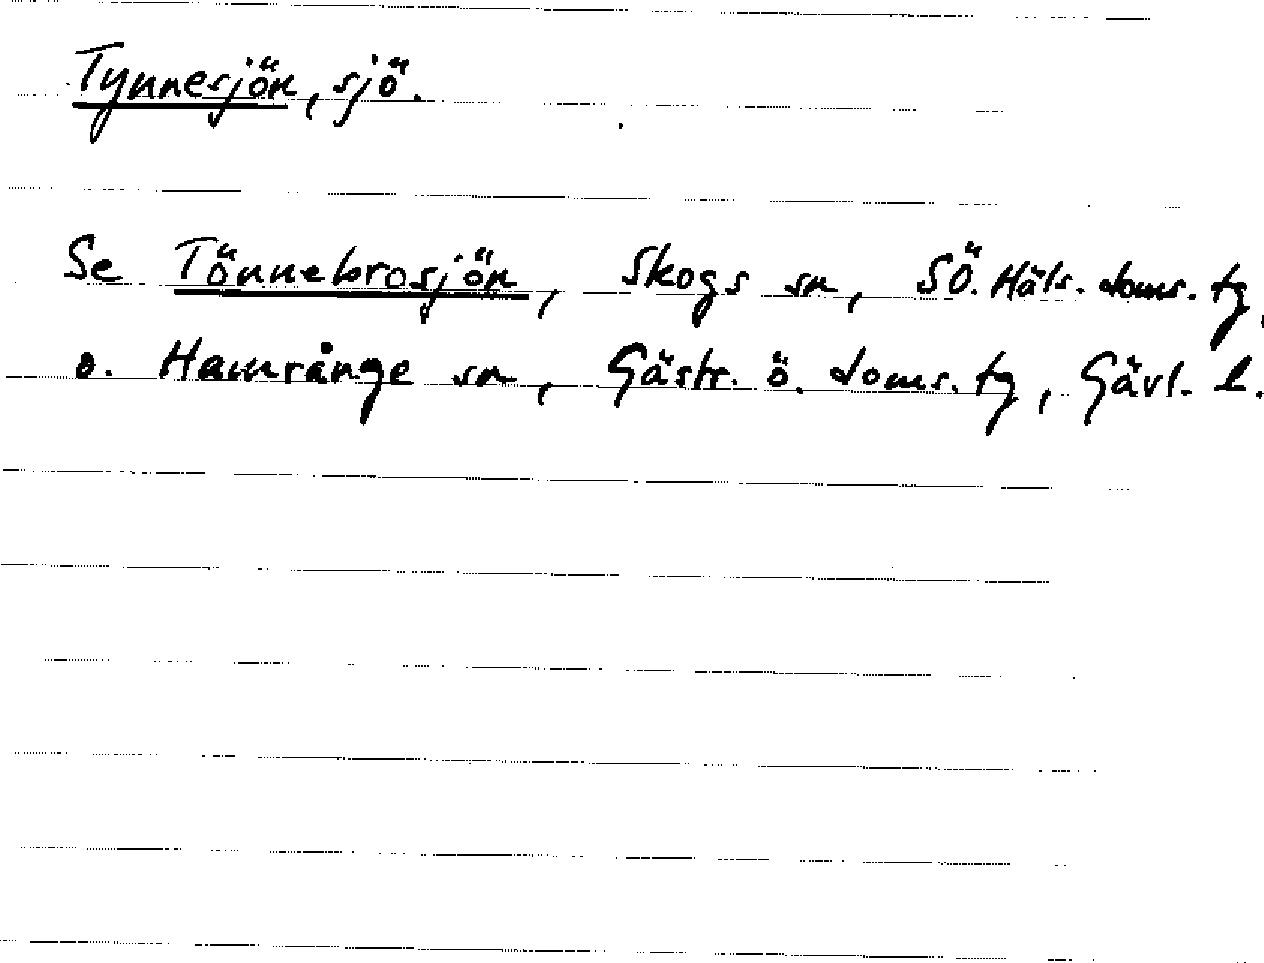 Tynnesjön, sjö.
Se Tönnebrosjön, Skogs sn, SÖ. Häls. doms. tg,
o. Hamrånge sn, Gästr. ö. doms. tg, Gävl. l.